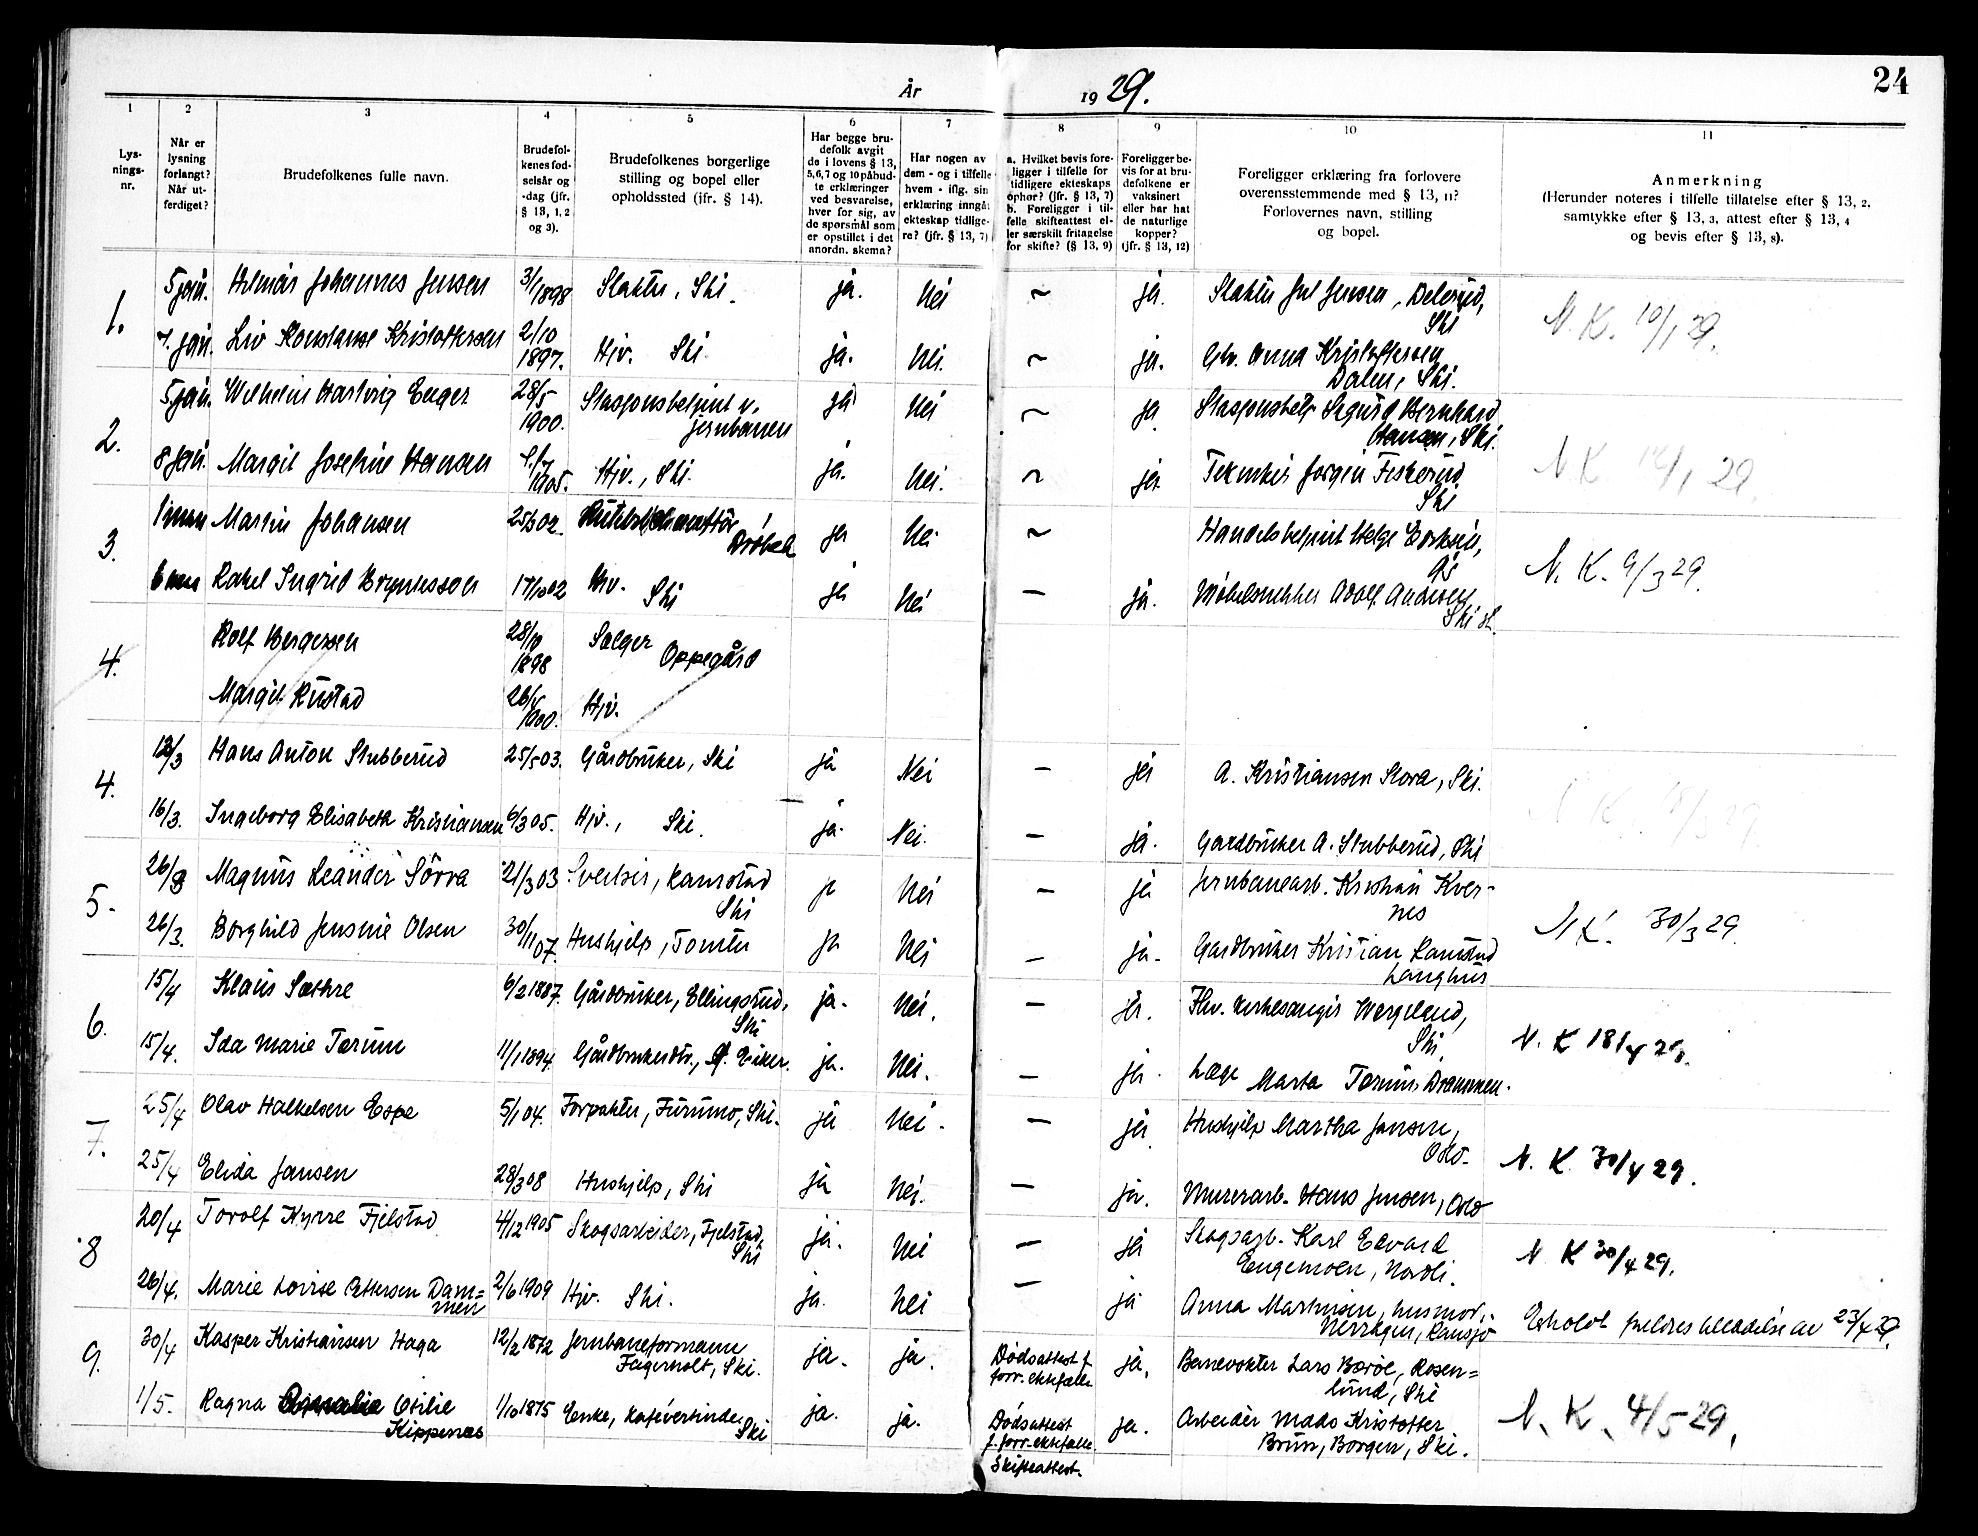 24
År 1929.
1 2 3 4 5 6 7 8 9 10 11
Lys-
nings-
nr.
Når er
lysning
forlangt?
Når ut-
ferdiget?
Brudefolkenes fulle navn.
Brudefol-
kenes fød-
selsår og
-dag (jfr.
§ 13, 1, 2
og 3).
Brudefolkenes borgerlige
stilling og bopel eller
opholdssted (jfr. § 14).
Har begge bru-
defolk avgit
de i lovens § 13,
5,6,7 og 10 påbud-
te erklæringer
ved besvarelse,
hver for sig, av
de spørsmål som
er opstillet i det
anordn. skema?
Har nogen av
dem - og i tilfelle
hvem - iflg. sin
erklæring inngåt
ekteskap tidlige-
re? (jfr. § 13, 7)
a. Hvilket bevis fore-
ligger i tilfelle for
tidligere ekteskaps
ophør? (jfr. § 13, 7)
b. Foreligger i til-
felle skifteattest el-
ler særskilt fritagelse
for skifte? (§ 13, 9)
Foreligger be-
vis for at bru-
defolkene er
vaksinert
eller har hat
de naturlige
kopper?
(jfr. § 13, 12)
Foreligger erklæring fra forlovere
overensstemmende med § 13, 11?
Forlovernes navn, stilling
og bopel.
Anmerkning
(Herunder noteres i tilfelle tillatelse efter § 13, 2,
samtykke efter § 13, 3, attest efter § 13, 4
og bevis efter § 13, 8).
1. 5 jan. Hilmar Johannes Jensen 3/1 1898 Slakter, Ski. ja. Nei ~ ja. Slakter Jul Jensen,
Ski
N. K. 10/1 29.
7. jan. Liv Konstanse Kristoffersen 2/10
1897. Hjv. Ski. ja. Nei. ~ ja. Anna Kristoffersen
Dalen, Ski.
2. 5 jan. Wilhelm Hartvig Enger 28/5
1900. Stasjonsbetjent v.
jernbanen ja Nei ~ ja Sigurd Bernhard
Hansen, Ski.
N K 29
8 jan. Margit Josefine Hansen
1905. Hjv., Ski. ja. Nei. ~ ja Jørgen Fiskerud
Ski
3. Martin Johansen 25/3 02.
Drøbak ja Nei ~ Handelsbetjent Helge
Ås
N. K. 9/3 29.
Rakel Ingrid Brynilsson 17/10 02 Hjv. Ski ja Nei — ja. Møbelsnekker Adolf Andersen
Ski st.
4. Rolf Bergersen 28/10
1898 Selger Oppegård
Margit Rustad 26/4
1900. Hjv.
4. 12/3 Hans Anton Stubberud 25/5 03. Gårdbruker, Ski ja Nei — ja A. Kristiansen Stora, Ski.
16/3. Ingeborg Elisabeth Kristiansen 6/3 05. Hjv., Ski. ja. Nei. — ja. Gardbruker A. Stubberud, Ski
5. 26/3 Magnus Leander Sørra 21/3 03 Sveiser, Ramstad
Ski ja Nei — ja Jernbanearb. Kristian Kver-
nes
N K. 30/3 29.
26/3. Borghild Jensine Olsen 30/11 07. Hushjelp, Tomter ja Nei — ja. Gardbruker Kristian Ramstad
Langhus
6. 15/4 Klaus Sæthre 6/2 1887. Gårdbruker, Ellingsrud,
Ski ja. Nei. — ja. Wergeland,
Ski.
N. K 18/4 29.
15/4. Ida Marie Tærum 11/1 1894. Gårdbrukerdtr., Ø. Eiker. ja. Nei. — ja. Læge Marta Tærum Drammen.
7. 25/4 Olav Halkelsen Espe 5/1 04. Forpakter, Furumo, Ski. ja Nei. — ja Hushjelp Martha Jansen,
Oslo.
N. K. 30/4 29.
25/4 Elida Jansen 28/3 08 Hushjelp, Ski ja Nei. — ja. Murerarb. Hans Jensen, Oslo
8 20/4 Torolf Kyrre Fjelstad 4/12 1905 Skogsarbeider, Fjelstad,
Ski ja. Nei — ja Skogsarb. Karl Edvard
Engemoen, Nordli.
N. K 30/4 29.
26/4. Marie Lovise Pettersen Dam=
men 2/6 1909 Hjv. Ski. ja. Nei — ja Anna Martinsen, husmor,
Kansjø
Erholdt tilladelse av 23/4 29
9. 30/4 Kasper Kristiansen Haga 12/2 1872 Jernbaneformann
Fagerholt, Ski. ja. ja. Dødsattest f.
forr. ektefælle ja. Banevokter Lars Børøe, Rosen=
lund, Ski
N. K. 4/5 29.
1/5. Ragna Otilie
Kippenes 1/10 1875 Enke, kafévertinde
Ski ja. ja. Dødsattest
f. forr. ektefælle
Skifteattest. ja. Arbeider Mads Kristoffer
Brun, Borgen, Ski.